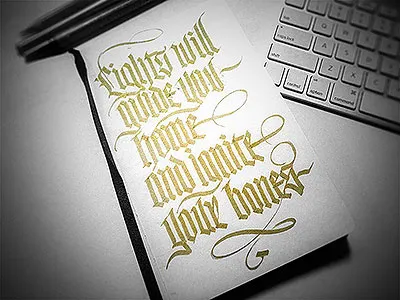 Lights will
guide you
home
and ignite
your bones
control
option
command